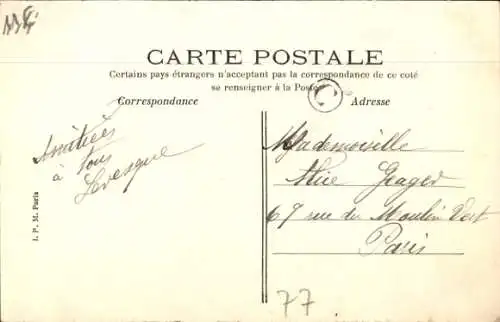 CARTE POSTALE
Certains pays étrangers n'acceptent pas la correspondance de ce coté
se renseigner à la Poste
Correspondance
Adresse
Amitiés
à tous
Levesque
Mademoiselle
Alice
67 rue du Moulin Vert
Paris
I. P. M. Paris
77